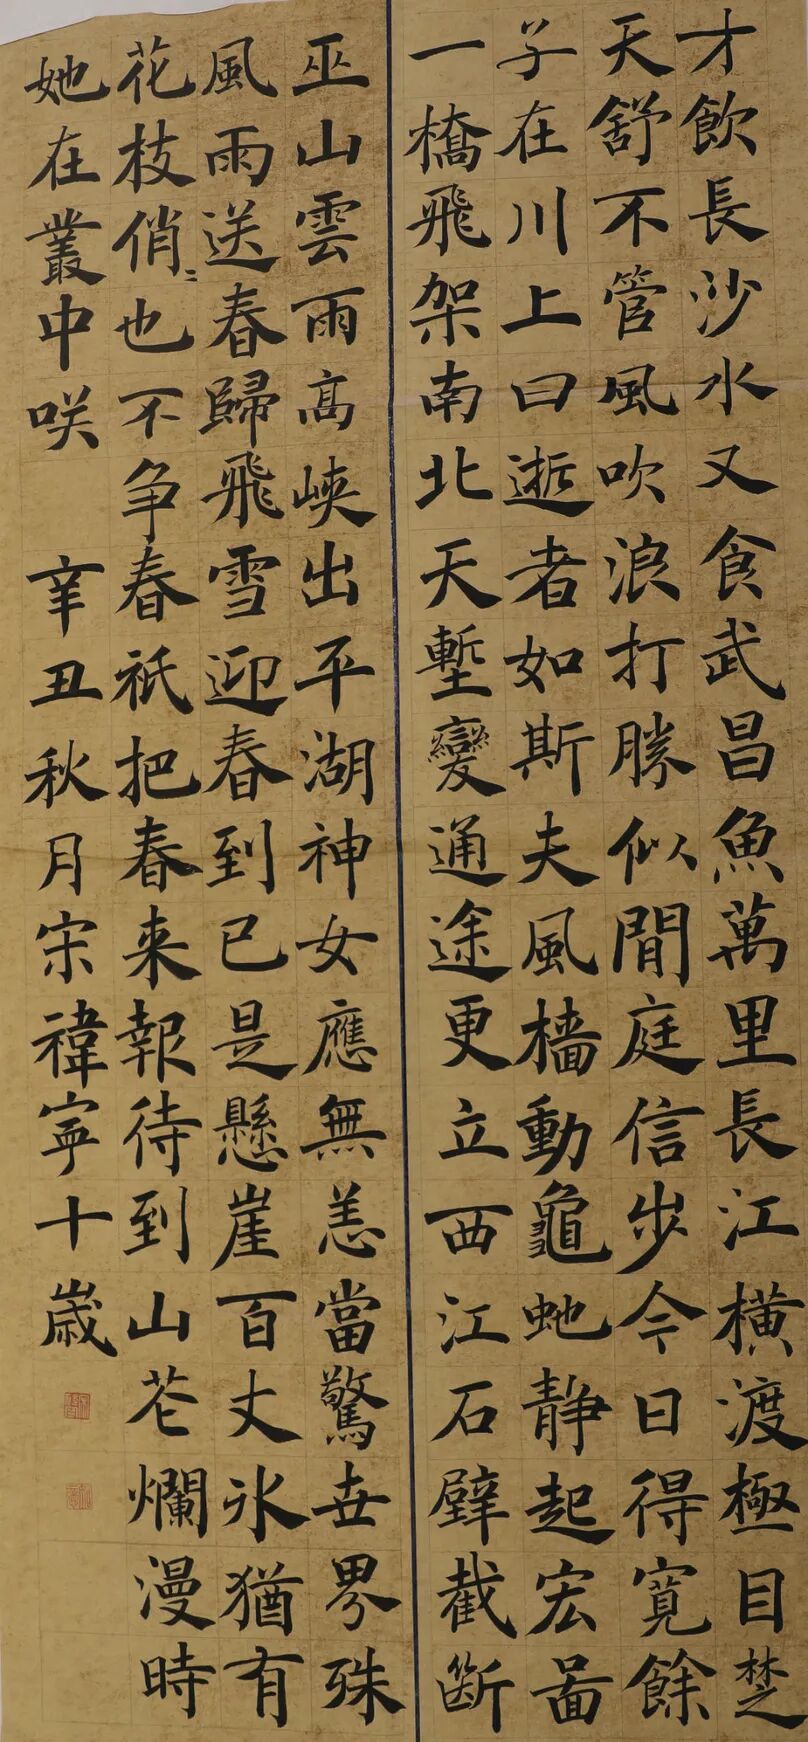 才飲長沙水又食武昌魚萬里長江橫渡極目楚
天舒不管風吹浪打勝似閒庭信步今日得寬餘
子在川上曰逝者如斯夫風檣動龜虵静起宏啚
一橋飛架南北天塹變通途更立西江石壁截斷
巫山雲雨高峽出平湖神女應無恙當驚世界殊
風雨送春歸飛雪迎春到已是懸崖百丈冰猶有
花枝俏〻也不争春祇把春来報待到山花爛漫時
她在叢中咲 辛丑秋月宋禕寧十歲